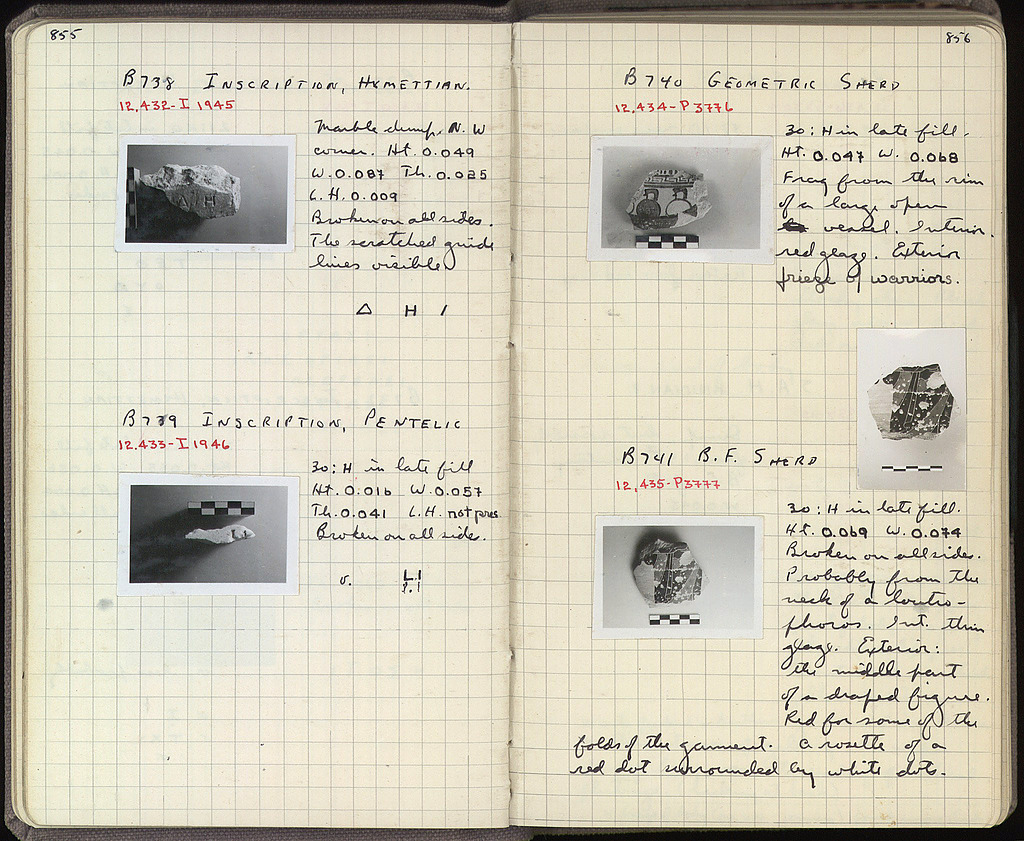 855
B738 INSCRIPTION, HYMETTIAN.
12.432-I 1945
Marble dump, N.W
corner. Ht. 0.049
W. 0.087 Th. 0.035
L.H. 0.009
Broken on all sides.
The scratched guide
lines visible
Δ H I
B739 INSCRIPTION, PENTELIC
12.433-I 1946
30:H in late fill
Ht. 0.016 W. 0.057
Th. 0.041 L.H. not pres
Broken on all sides.
v.
856
B740 GEOMETRIC SHERD
12.434-P 3776
30:H in late fill.
Ht. 0.047 W. 0.068
Frag from the rim
of a large open
vessel. Interior,
red glaze. Exterior
frieze of warriors.
B741 B.F. SHERD
12.435-P3777
30:H in late fill.
Ht. 0.069 W. 0.074
Broken on all sides.
Probably from the
neck of a loutro-
phoros. Int. thin
glaze. Exterior:
the middle part
of a draped figure.
Red for some of the
folds of the garment. A rosette of a
red dot surrounded by white dots.